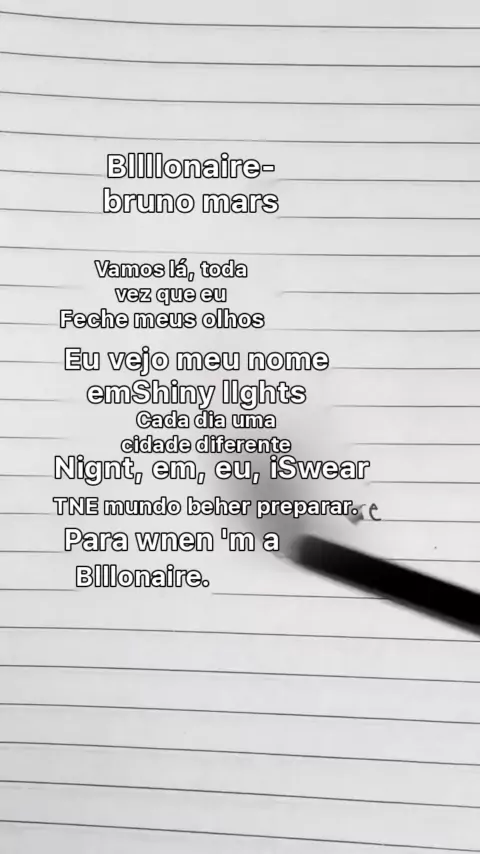 Bllllonaire-
bruno mars
Vamos lá, toda
vez que eu
Feche meus olhos
Eu vejo meu nome
emShiny llghts
Cada dia uma
cidade diferente
Nignt, em, eu, iSwear
TNE mundo beher preparar.
Para wnen 'm a
Blllonaire.